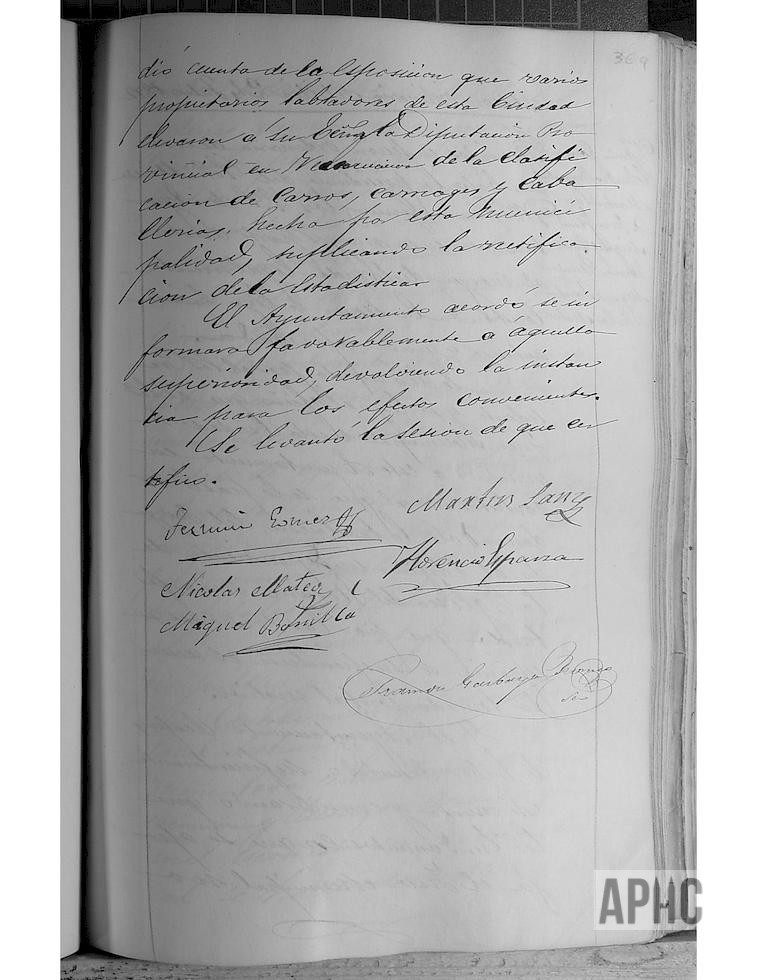 369
dió cuenta de la esposicion que varios
propietarios labradores de esta Ciudad
elevaron á su Eſcma la Diputación Pro
vincial en de la clasifi
cación de Carros, carruages y Caba
llerias, hecha por esta Munici
palidad, suplicando la retifica-
cion de la Estadistica
El Ayuntamiento acordó se in
formara favorablemente á aquella
superioridad, devolviendo la instan
cia para los efectos convenientes.
Se levantó la sesion de que cer
tifico.
Martin Sanz
Fermin Gomez
Florencio Esparza
Nicolas Mateo
Miguel Bonilla
Ramon Garbayo
Srio
APHC